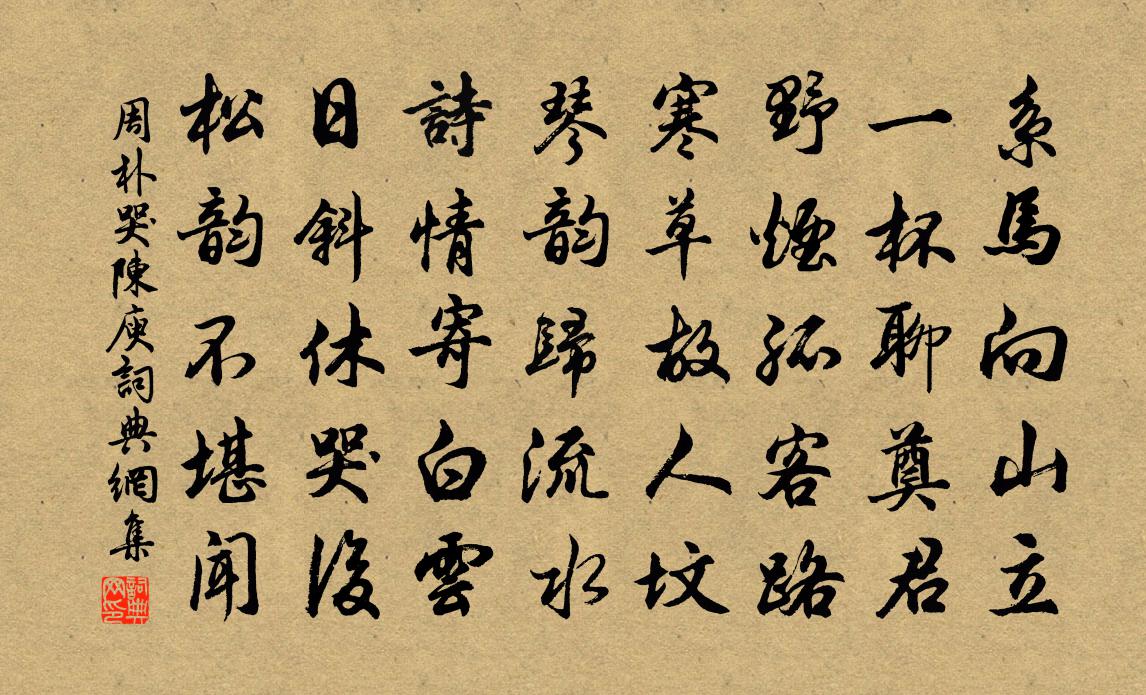 系馬向山立
一杯聊奠君
野煙孤客路
寒草故人墳
琴韵歸流水
詩情寄白雲
日斜休哭後
松韵不堪聞
周朴哭陳庾詞典網集
詞典网印